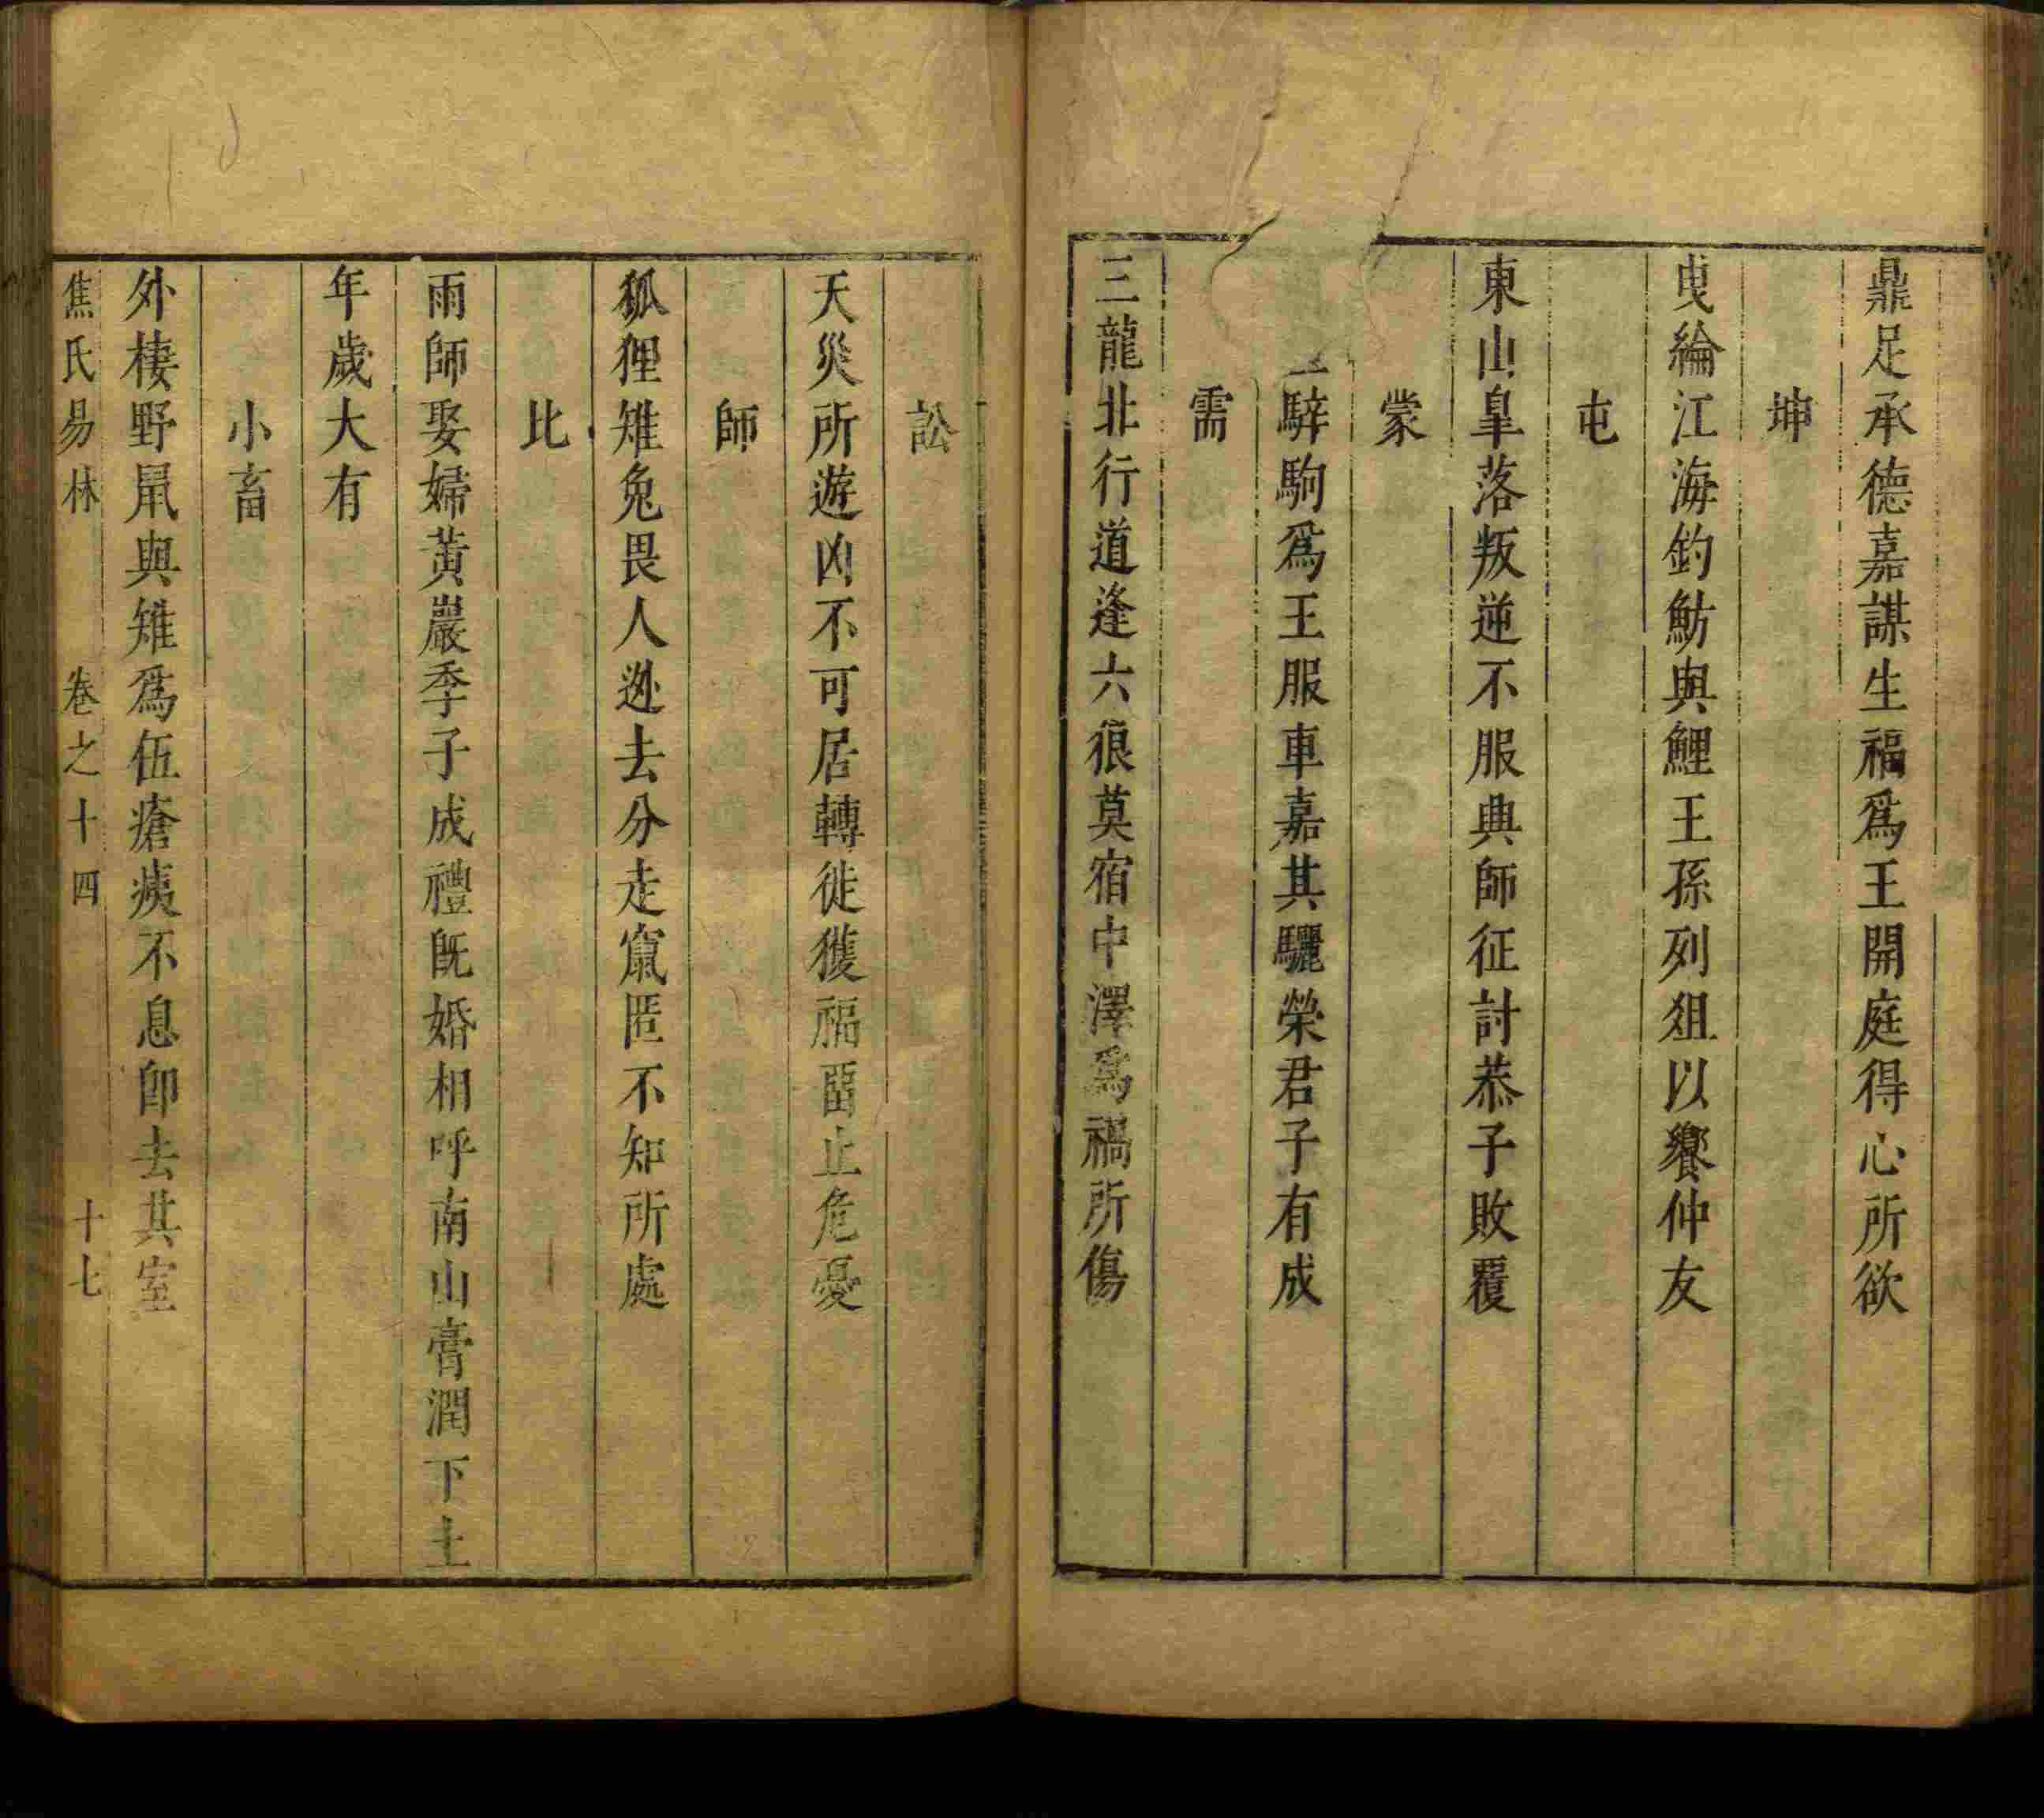 鼎足承德嘉謀生福爲王開庭得心所欲
坤
曳綸江海釣魴與鯉王孫列俎以饗仲友
屯
東山皐落叛逆不服興師征討恭子敗覆
蒙
騂駒爲王服車嘉其驪榮君子有成
需
三龍北行道逢六狼莫宿中澤爲禍所傷
訟
天災所遊凶不可居轉徙獲福畱止危憂
師
狐狸雉兔畏人逊去分走竄匿不知所處
比
雨師娶婦黃巖季子成禮旣婚相呼南山膏潤下土
年歲大有
小畜
外棲野鼠與雉爲伍瘡痍不息卽去其室
焦氏易林 卷之十四 十七